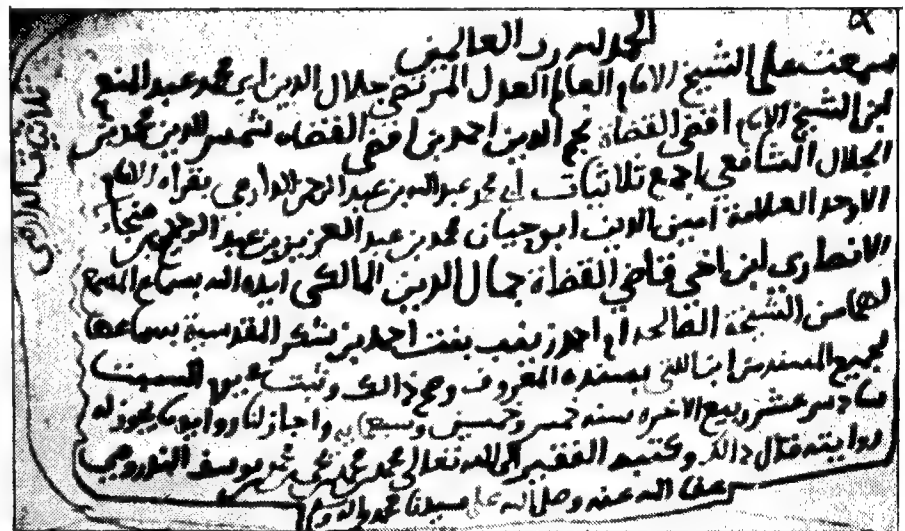 الحمد لله رب العالمين
سمعت على الشيخ الامام العالم العدل المرتضى جلال الدين ابي محمد عبد المنعم
ابن الشيخ الامام اقضى القضاة نجم الدين احمد بن اقضى القضاه شمس الدين محمد بن
الجلال الشافعي اجمع ثلاثيات ابي محمد عبد الله بن عبد الرحمن الدارمي بقراه الامام
الاوحد العلامة امين الدين ابو حيان محمد بن عبد العزيز بن عبد الرحيم بن
الانصاري ابن اخي قاضي القضاة جمال الدين المالكي ايده الله بسماع المسمع
لها من الشيخة الصالحة ام احمد زينب بنت احمد بن شكر المقدسية بسماعها
لجميع المسند من ابن اللتي بسنده المعروف وصح ذالك وثبت عشية السبت
سادس عشر ربيع الاخره سنه خمس وخمسين وسبعمايه واجاز لنا رواية ما يجوز له
روايته قال ذالك وكتبه الفقير الى الله تعالى محمد بن محمد بن يحيى بن يوسف الندرومي
عفا الله عنه وصلى الله على سيدنا محمد واله وسلم
ثلاثيات الدارمي